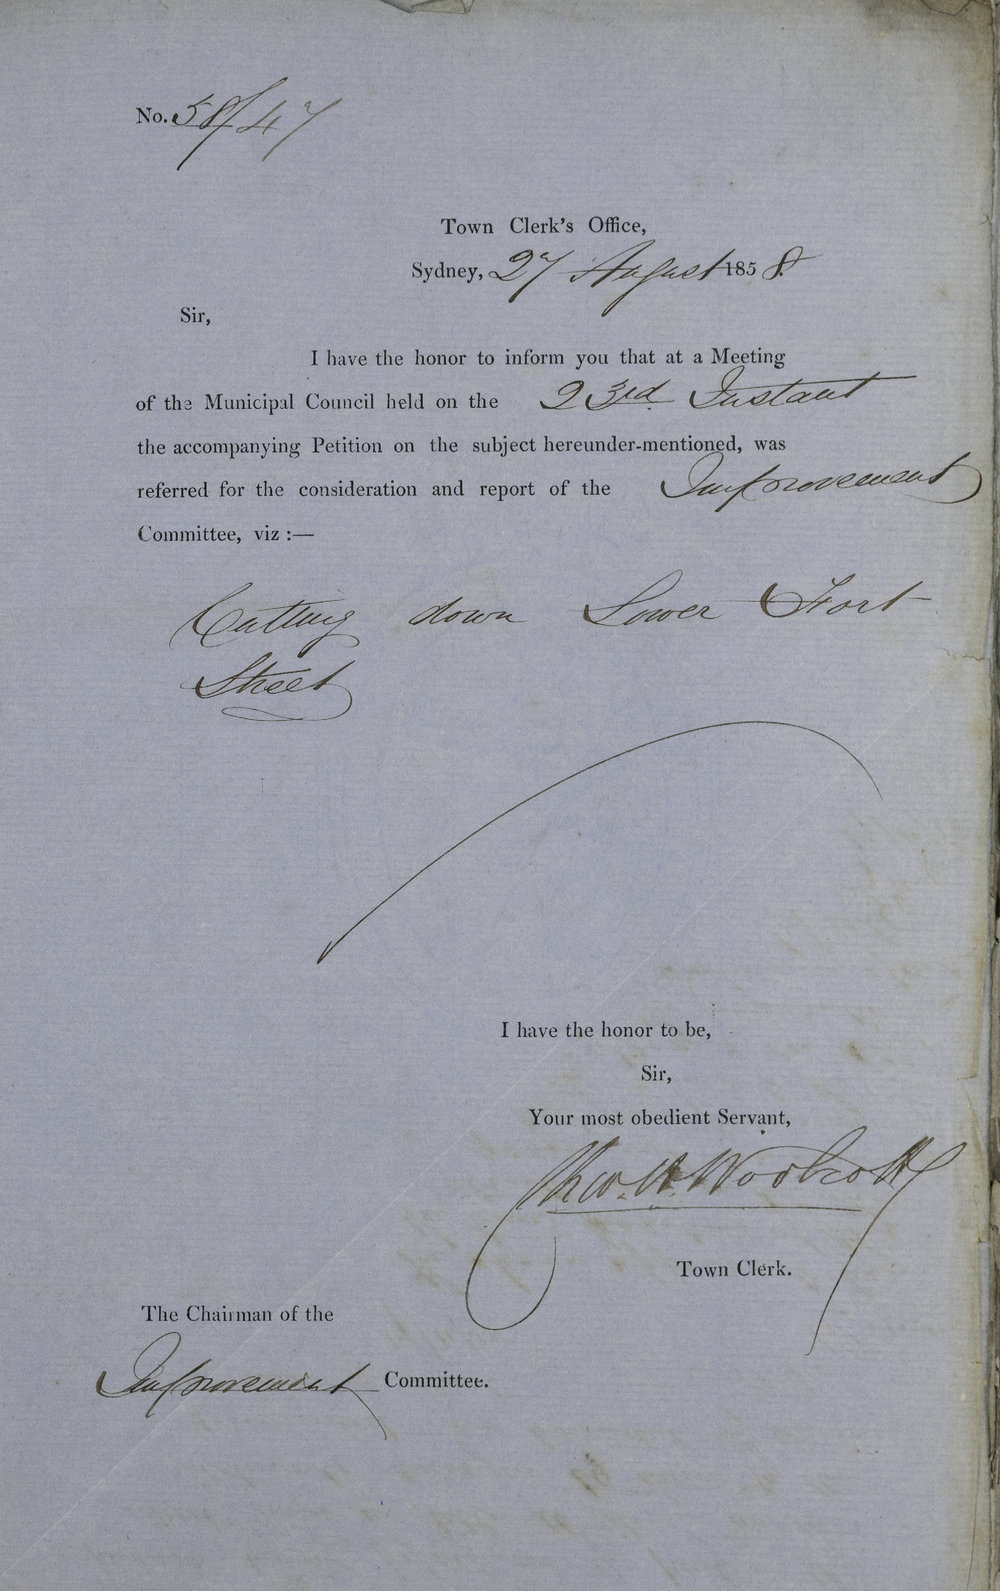 No. 58/47
Town Clerk's Office,
Sydney, 27 August 1858.
Sir,
I have the honor to inform you that at a Meeting
of the Municipal Council held on the 23rd Instant
the accompanying Petition on the subject hereunder-mentioned, was
referred for the consideration and report of the Improvement
Committee, viz :—
Cutting down Lower Fort
Street
I have the honor to be,
Sir,
Your most obedient Servant,
Chas. H. Woolcott
Town Clerk.
The Chairman of the
Improvement Committee.